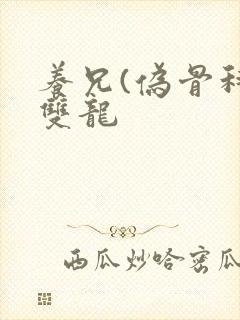 養兄(偽骨科
雙龍
西瓜炒哈密瓜